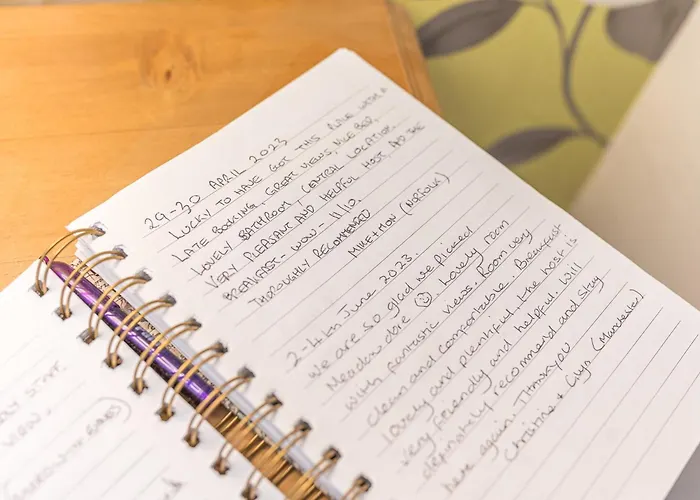 29-30 APRIL 2023
LUCKY TO HAVE GOT THIS PLACE WITH A
LATE BOOKING, GREAT VIEWS, NICE BED,
LOVELY BATHROOM, CENTRAL LOCATION
VERY PLEASANT AND HELPFUL HOST, AND THE
BREAKFAST - WOW - 11/10.
THOROUGHLY RECOMMENDED
MIKE + MON (NORFOLK)
2-4th June 2023.
We are so glad we picked
Meadow dore ☺ Lovely room
with fantastic views. Room very
clean and comfortable. Breakfast
lovely and plentiful, the host is
very friendly and helpful. Will
definately recommend and stay
here again. Thankyou
Christine + Glyn (Manchester)
STAY.
VIEW,